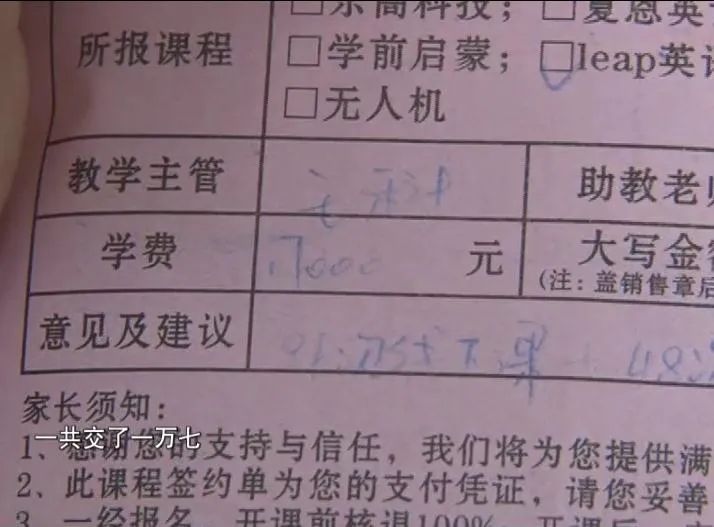 乐高科技；□夏恩英
所报课程 □学前启蒙；□leap英语
□无人机
教学主管 助教老师
学费 17000 元 大写金额
(注：盖销售章后
意见及建议 下课
家长须知：
一共交了一万七
1、感谢您的支持与信任，我们将为您提供满
2、此课程签约单为您的支付凭证，请您妥善
3、一经报名，开课前核退100%，开课后